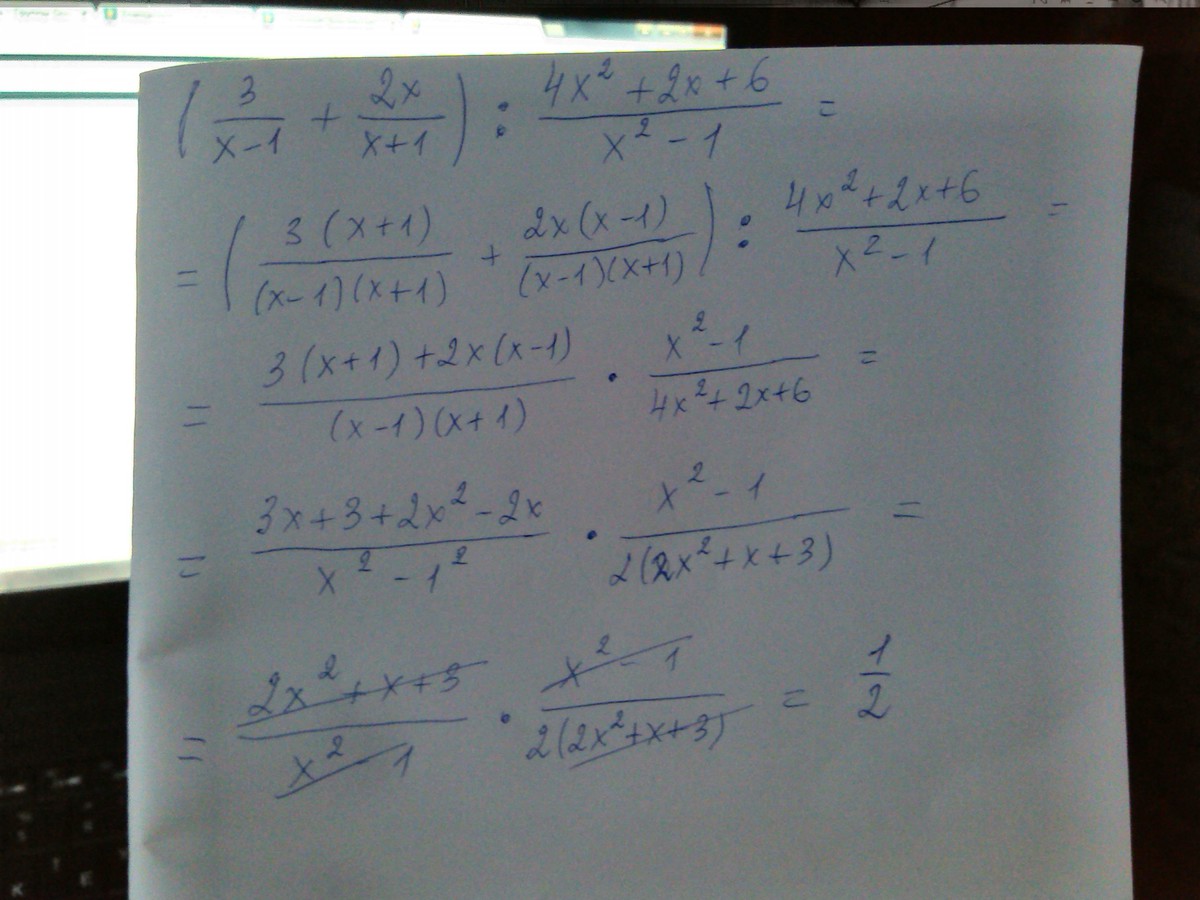 ( 3/(x-1) + 2x/(x+1) ) : (4x² + 2x + 6)/(x² - 1) =
= ( 3(x+1)/((x-1)(x+1)) + 2x(x-1)/((x-1)(x+1)) ) : (4x² + 2x + 6)/(x² - 1) =
= (3(x+1) + 2x(x-1))/((x-1)(x+1)) · (x² - 1)/(4x² + 2x + 6) =
= (3x + 3 + 2x² - 2x)/(x² - 1²) · (x² - 1)/(2(2x² + x + 3)) =
= (2x² + x + 3)/(x² - 1) · (x² - 1)/(2(2x² + x + 3)) = 1/2